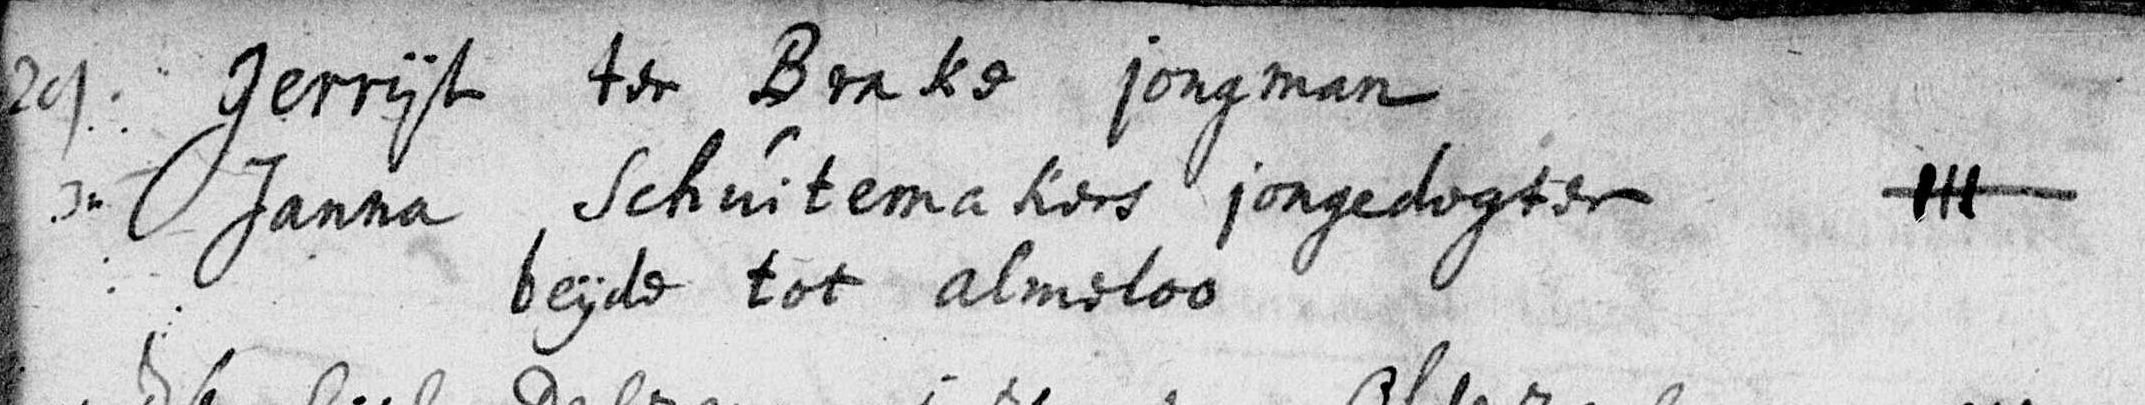 29. Gerrijt ter Brake jongman
Janna Schuitemakers jongedogter III
beijde tot almeloo